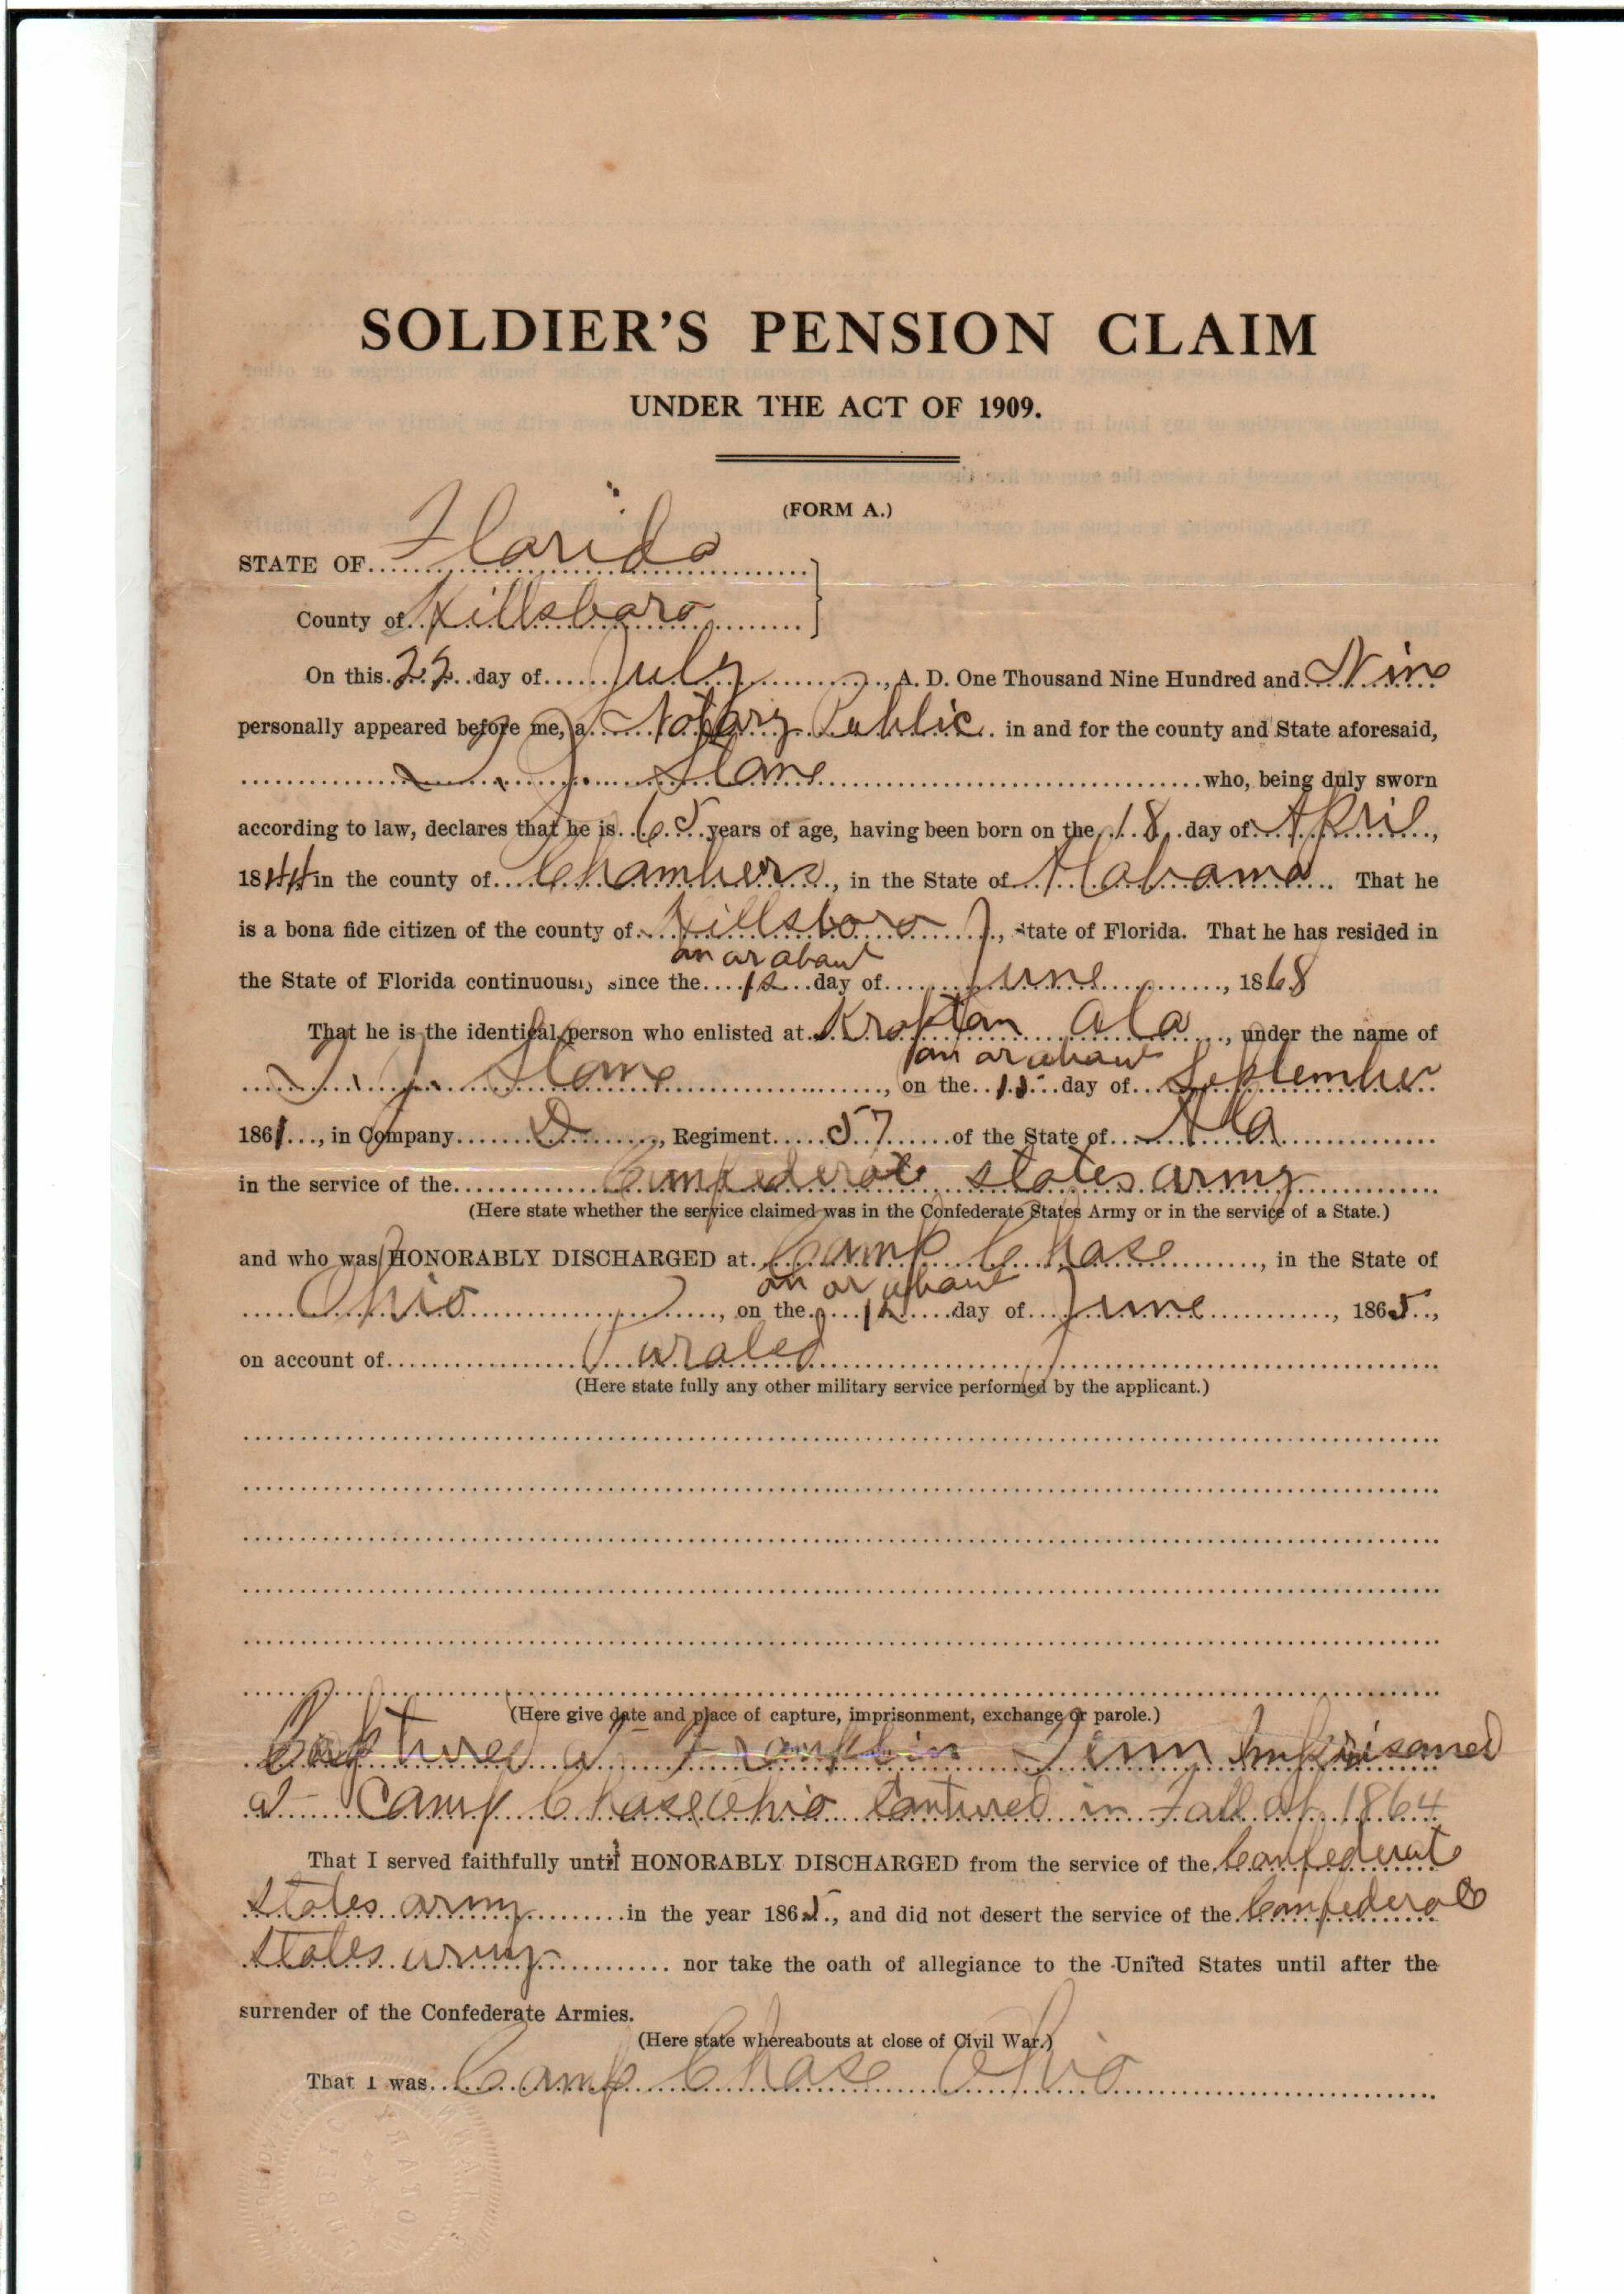 SOLDIER'S PENSION CLAIM
UNDER THE ACT OF 1909.
(FORM A.)
STATE OF Florida
County of Hillsboro
On this 22 day of July, A. D. One Thousand Nine Hundred and Nine
personally appeared before me, a Notary Public in and for the county and State aforesaid,
J. Slone who, being duly sworn
according to law, declares that he is 65 years of age, having been born on the 18 day of April,
1844 in the county of Chambers, in the State of Alabama. That he
is a bona fide citizen of the county of Hillsboro, State of Florida. That he has resided in
on or about
the State of Florida continuously since the 12 day of June, 1868
That he is the identical person who enlisted at Ala, under the name of
on or about
J. Slone, on the 15 day of September
1861, in Company D, Regiment 57 of the State of Ala
in the service of the Confederate states army
(Here state whether the service claimed was in the Confederate States Army or in the service of a State.)
and who was HONORABLY DISCHARGED at Camp Chase, in the State of
on or about
Ohio, on the 12 day of June, 1865,
on account of Paroled
(Here state fully any other military service performed by the applicant.)
(Here give date and place of capture, imprisonment, exchange or parole.)
Captured at Franklin Tenn Imprisoned
at Camp Chase Ohio Captured in Fall of 1864
That I served faithfully until HONORABLY DISCHARGED from the service of the Confederat
states army in the year 1865, and did not desert the service of the Confederate
states army nor take the oath of allegiance to the United States until after the
surrender of the Confederate Armies.
(Here state whereabouts at close of Civil War.)
That I was Camp Chase Ohio